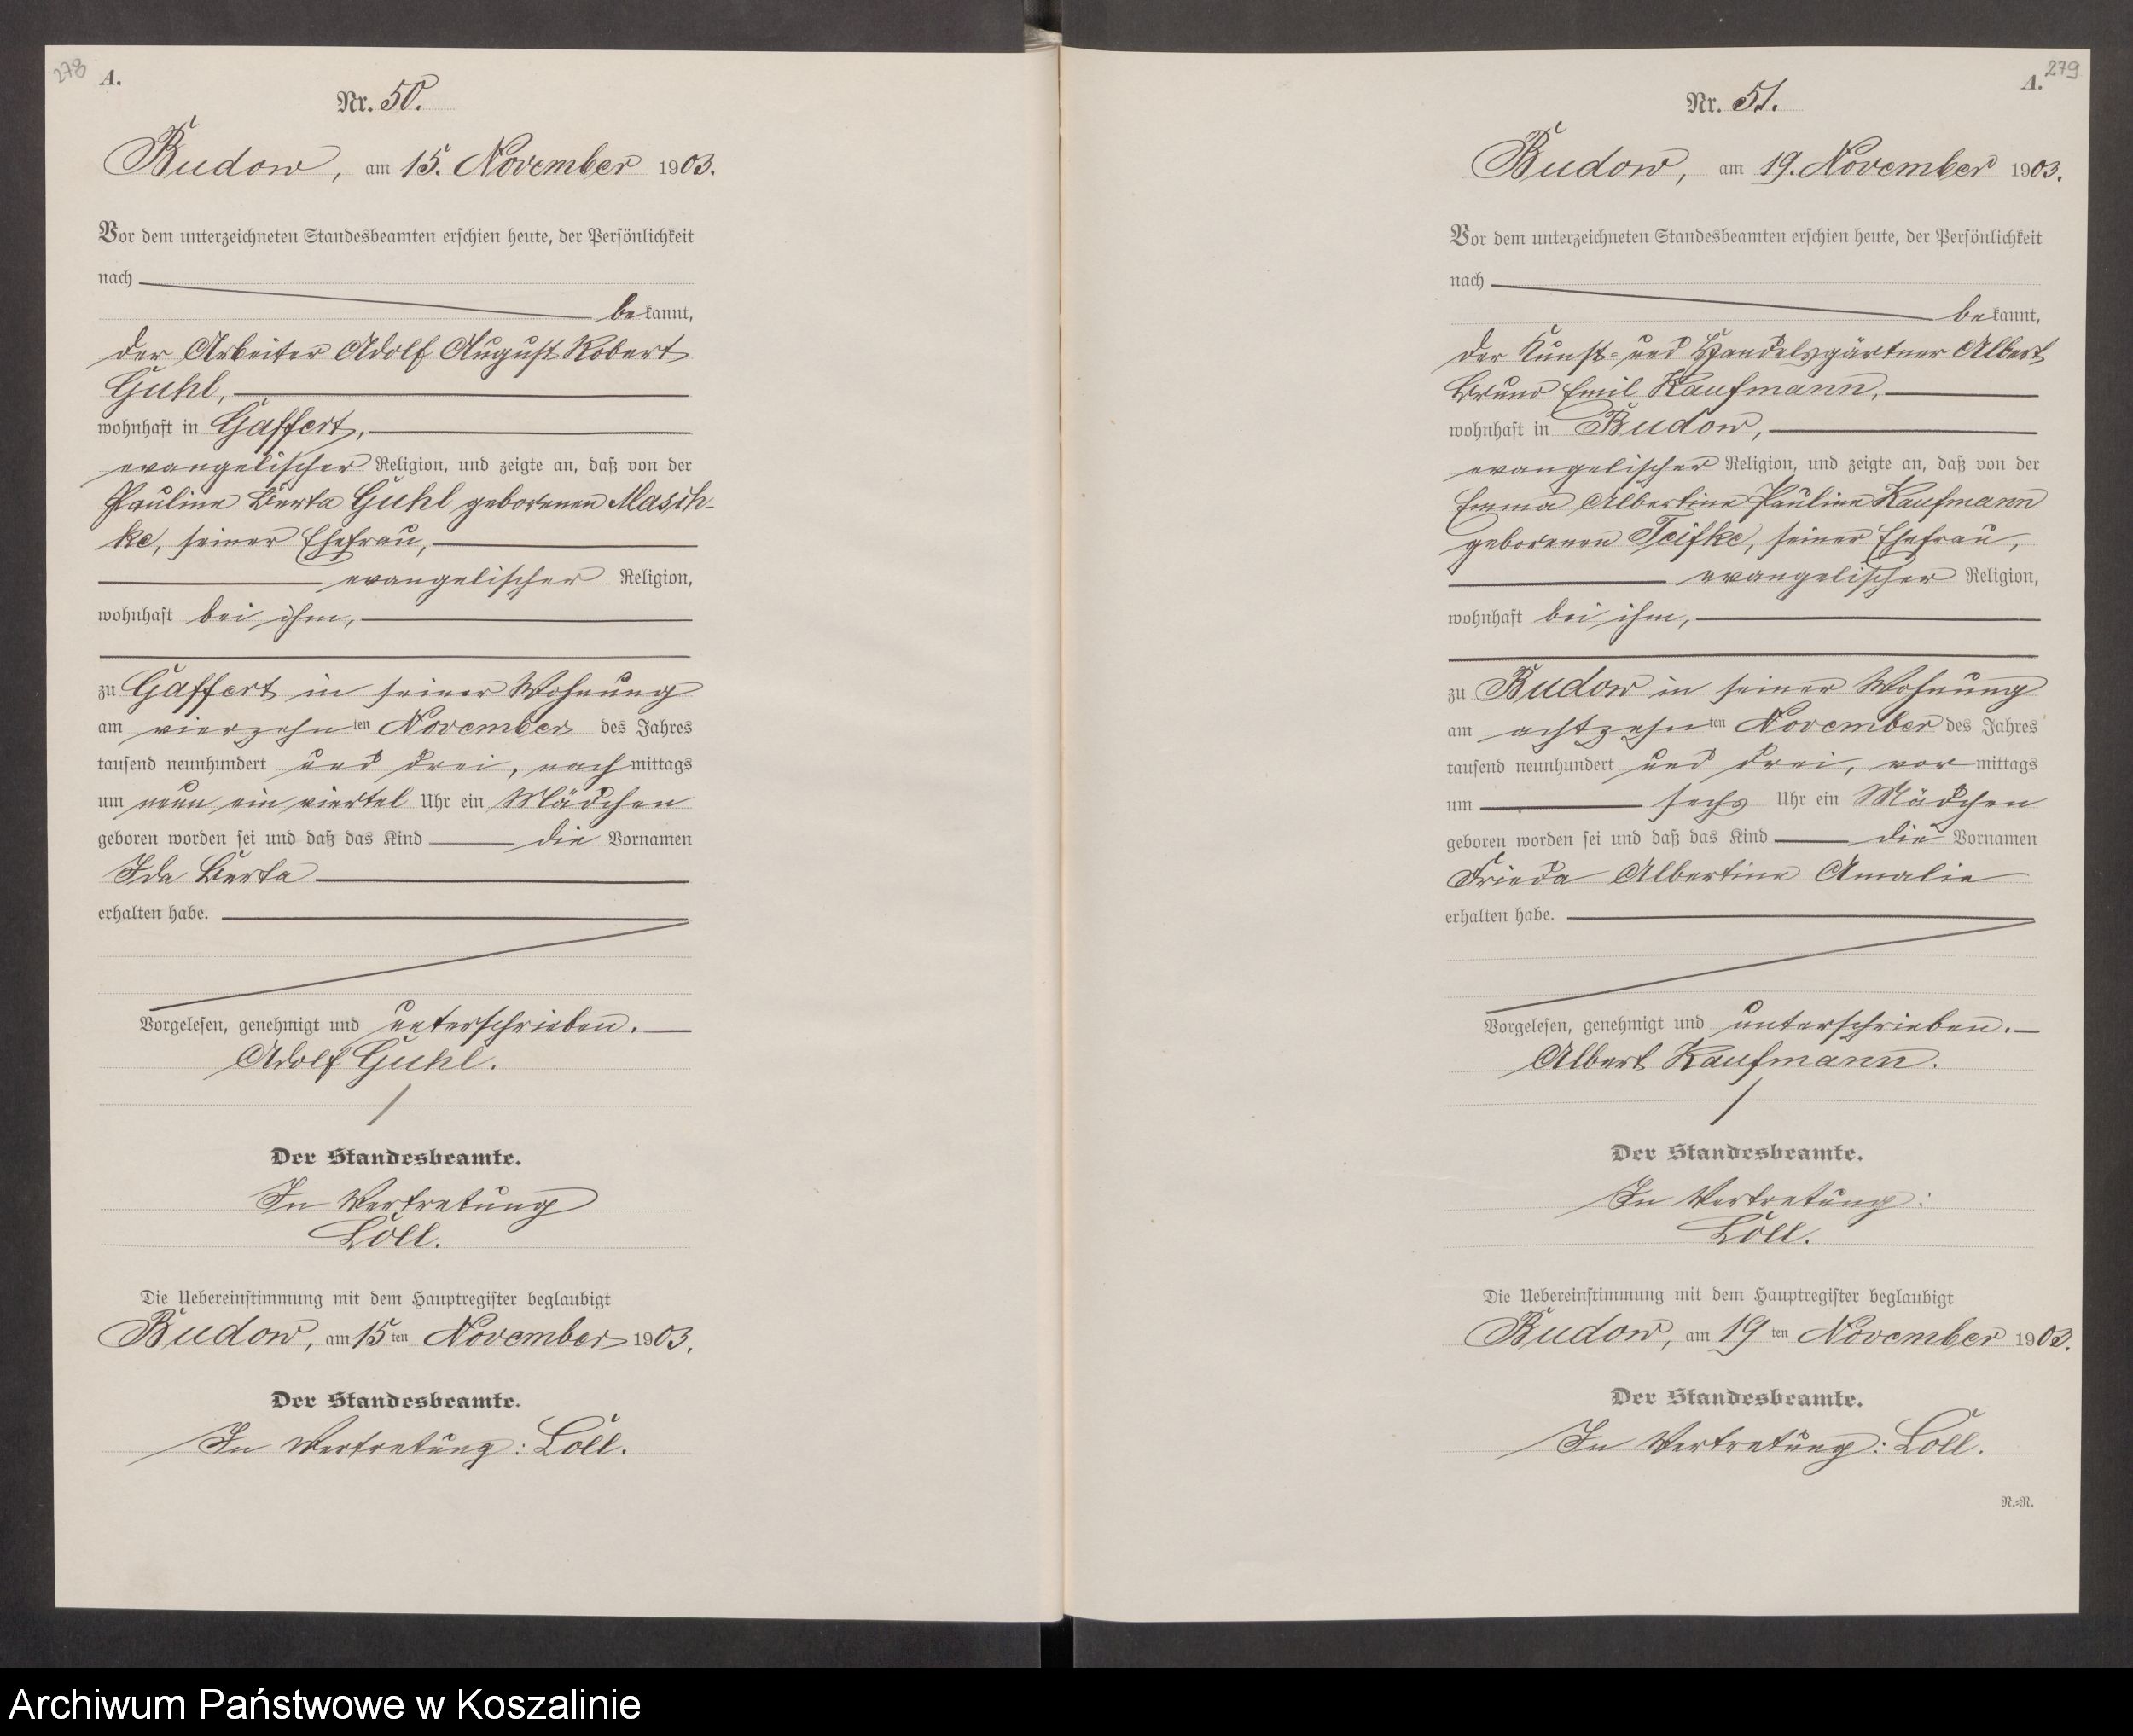 278
A.
Nr. 50.
Budow, am 15. November 1903.
Vor dem unterzeichneten Standesbeamten erschien heute, der Persönlichkeit
nach
bekannt,
der Arbeiter Adolf August Robert
Guhl,
wohnhaft in Gaffert,
evangelischer Religion, und zeigte an, daß von der
Pauline Berta Guhl geborenen Masch-
ke, seiner Ehefrau,
evangelischer Religion,
wohnhaft bei ihm,
zu Gaffert in seiner Wohnung
am vierzehnten November des Jahres
tausend neunhundert und drei, nachmittags
um neun ein viertel Uhr ein Mädchen
geboren worden sei und daß das Kind die Vornamen
Ida Berta
erhalten habe.
Vorgelesen, genehmigt und unterschrieben.
Adolf Guhl.
Der Standesbeamte.
In Vertretung
Loll.
Die Uebereinstimmung mit dem Hauptregister beglaubigt
Budow, am 15ten November 1903.
Der Standesbeamte.
In Vertretung: Loll.
279
A.
Nr. 51.
Budow, am 19. November 1903.
Vor dem unterzeichneten Standesbeamten erschien heute, der Persönlichkeit
nach
bekannt,
der Kunst- und Handelsgärtner Albert
Bruno Emil Kaufmann,
wohnhaft in Budow,
evangelischer Religion, und zeigte an, daß von der
Emma Albertine Pauline Kaufmann
geborenen Teifke, seiner Ehefrau,
evangelischer Religion,
wohnhaft bei ihm,
zu Budow in seiner Wohnung
am achtzehnten November des Jahres
tausend neunhundert und drei, vormittags
um sechs Uhr ein Mädchen
geboren worden sei und daß das Kind die Vornamen
Frieda Albertine Amalie
erhalten habe.
Vorgelesen, genehmigt und unterschrieben.
Albert Kaufmann.
Der Standesbeamte.
In Vertretung:
Loll.
Die Uebereinstimmung mit dem Hauptregister beglaubigt
Budow, am 19ten November 1903.
Der Standesbeamte.
In Vertretung: Loll.
N.=N.
Archiwum Państwowe w Koszalinie